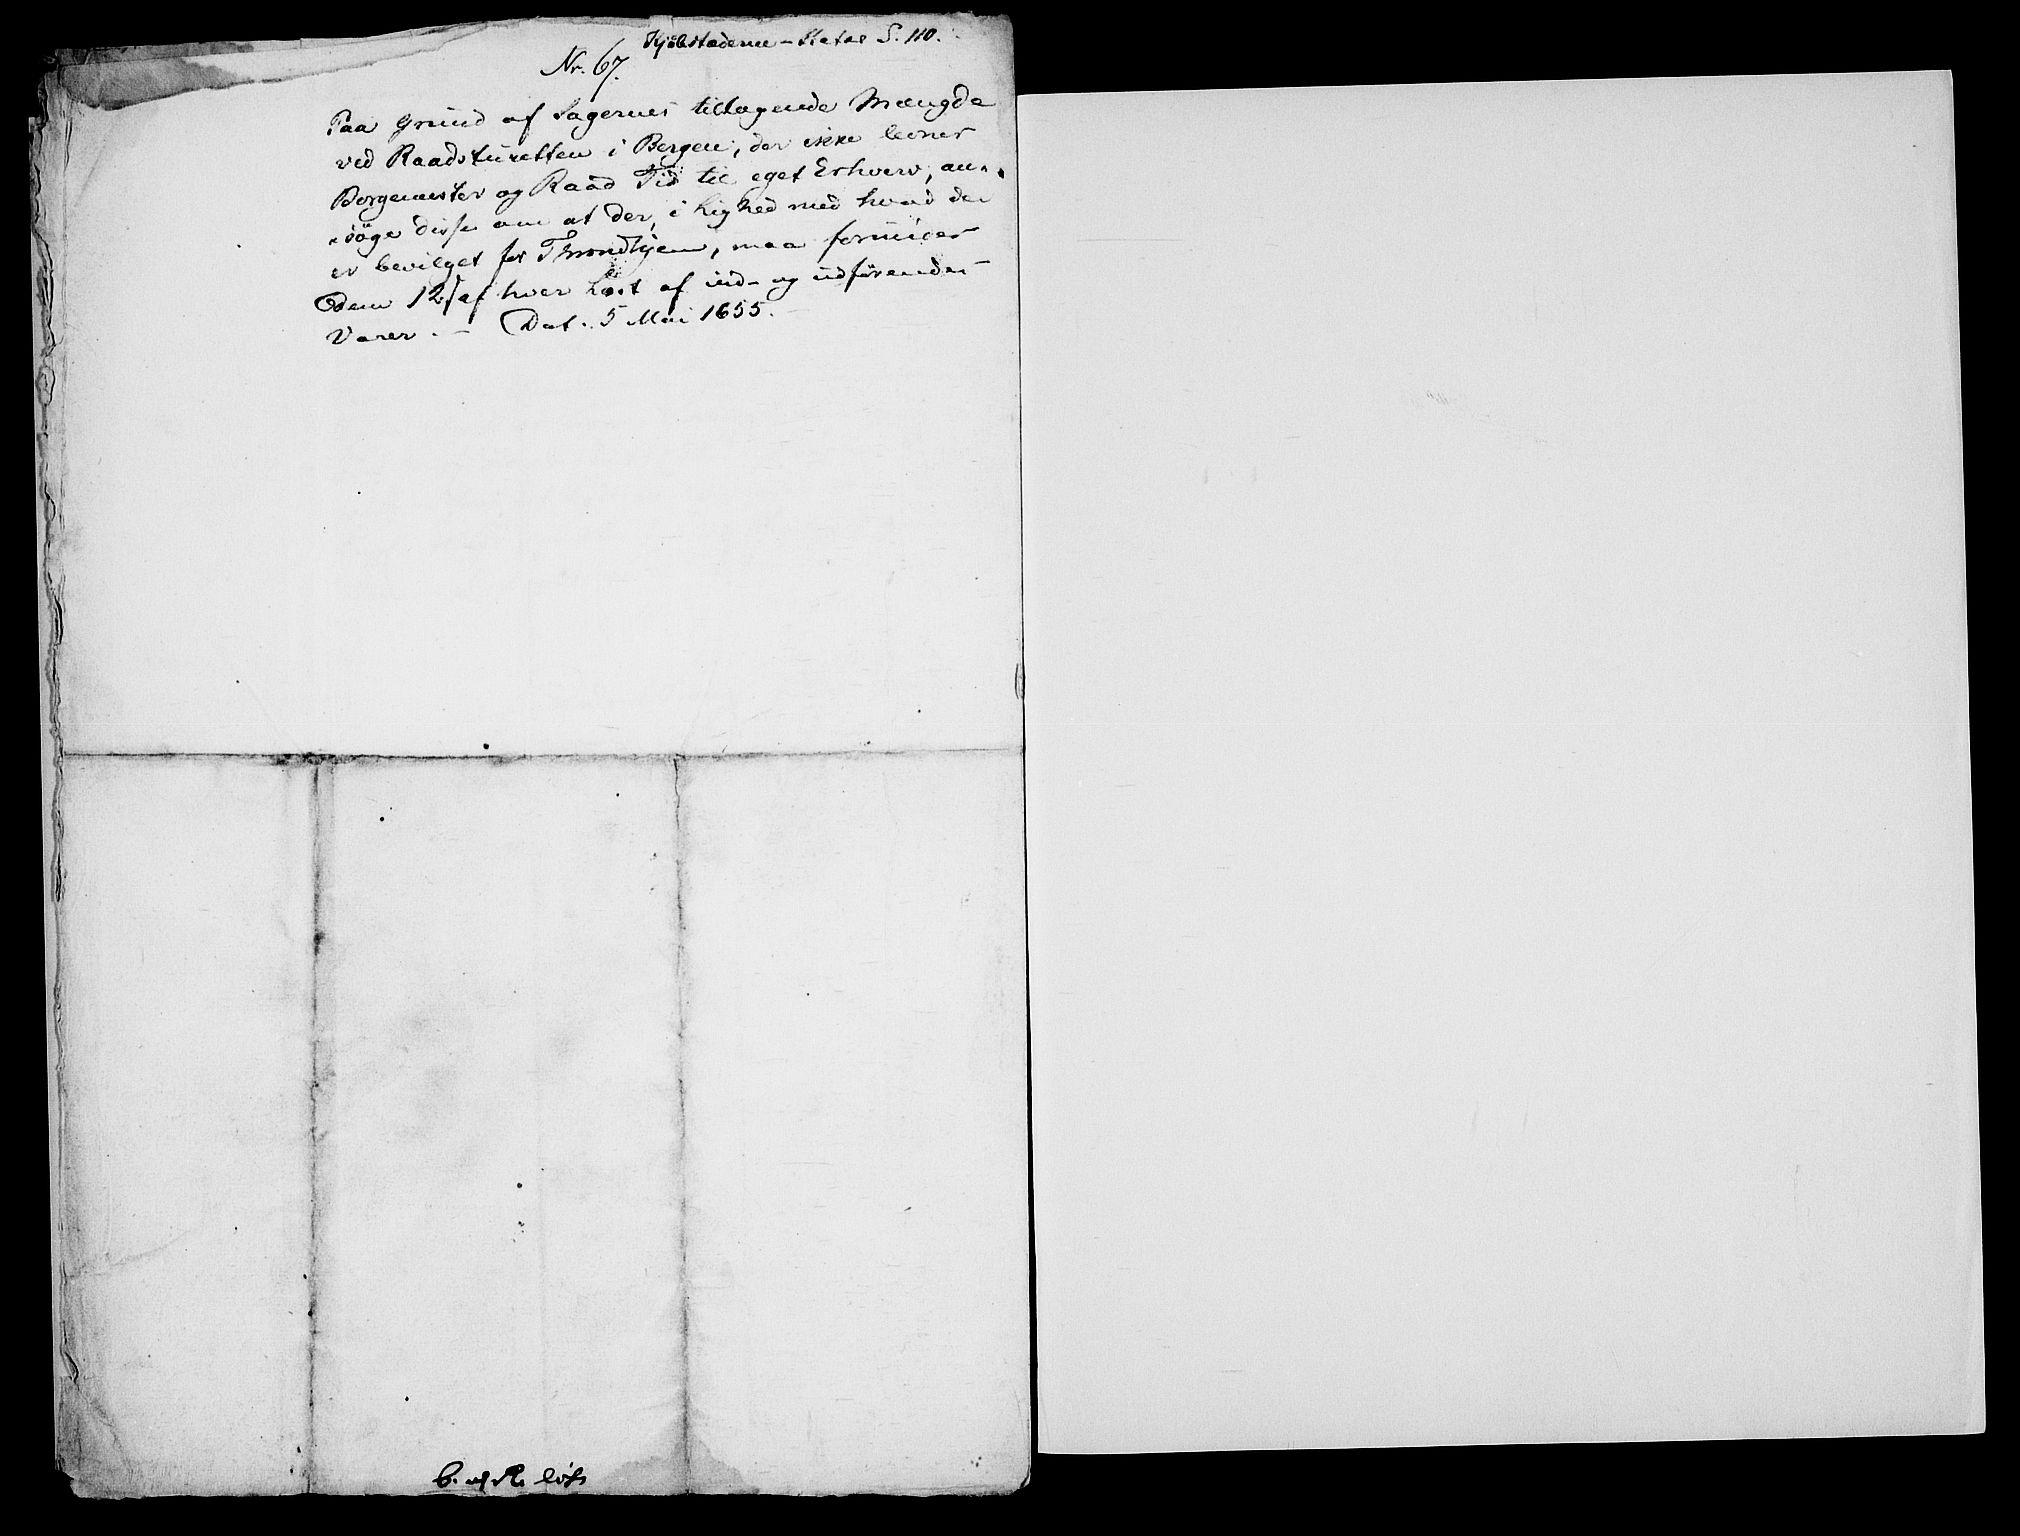 Kjöbstæderne - Rater S. 110.
Nr. 67.
Paa Grund af Sagernes tiltagende Mængde
ved Raadstueretten i Bergen, der ikke levner
Borgemester og Raad Tid til eget Erhverv, an-
-söge disse om at der, i Lighed med hvad der
er bevilget for Trondhjem, maa forundes
dem 12 ß af hver Læst af ind- og udförendes
Varer. - Dat. 5 Mai 1655.